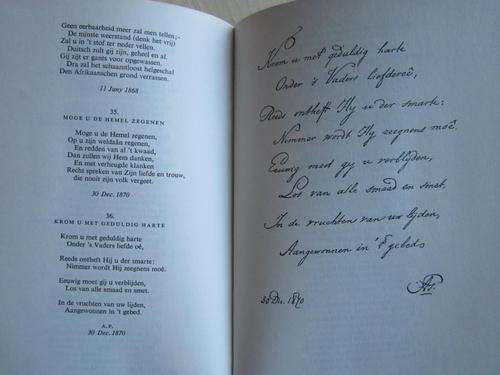 Geen eerbaarheid meer zal men tellen;-
De minste weerstand (denk het vrij)
Zal u in 't stof ter neder vellen.
Duitsch zult gij zijn, geheel en al.
Gij zijt er gants voor opgewassen.
Dra zal het schaamtloost helgeschal
Den Afrikaanschen grond verrassen.
11 Juny 1868
35.
MOGE U DE HEMEL ZEGENEN
Moge u de Hemel zegenen,
Op u zijn weldaân regenen,
En redden van al 't kwaad,
Dan zullen wij Hem danken,
En met verheugde klanken
Recht spreken van Zijn liefde en trouw,
die nooit zijn volk vergeet.
30 Dec. 1870
36.
KROM U MET GEDULDIG HARTE
Krom u met geduldig harte
Onder 's Vaders liefde oê,
Reeds ontheft Hij u der smarte:
Nimmer wordt Hij zeegnens moê.
Eeuwig moet gij u verblijden,
Los van alle smaad en smet.
In de vruchten van uw lijden,
Aangewonnen in 't gebed.
A.P.
30 Dec. 1870
Krom u met geduldig harte
Onder 's Vaders liefderoê,
Reeds ontheft Hy u der smarte:
Nimmer wordt Hy zeegnens moê.
Eeuwig moet gy u verblijden,
Los van alle smaad en smet,
In de vruchten van uw lijden,
Aangewonnen in 't gebed.
30 Dec. 1870